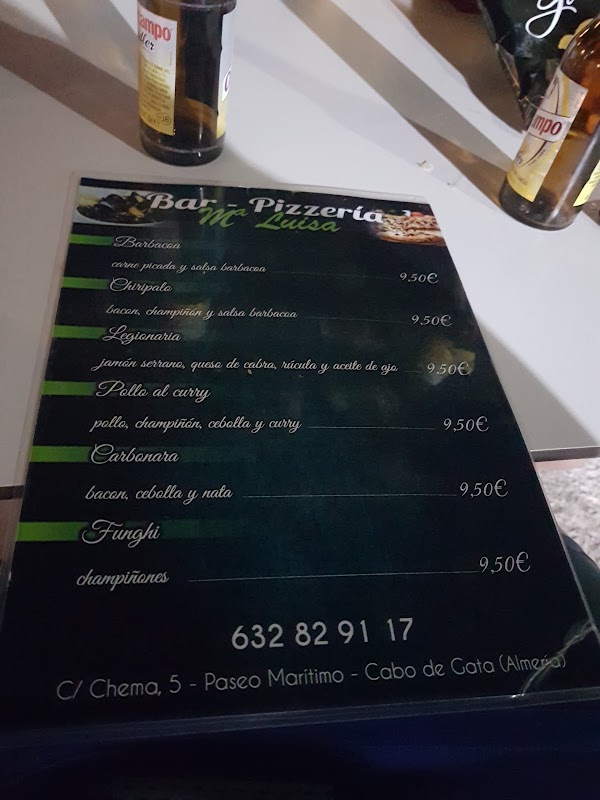 Campo
Bar - Pizzería
Mª Luisa
Barbacoa
carne picada y salsa barbacoa 9,50€
Chiripato
bacon, champiñon y salsa barbacoa 9,50€
Legionaria
jamón serrano, queso de cabra, rúcula y aceite de ajo 9,50€
Pollo al curry
pollo, champiñón, cebolla y curry 9,50€
Carbonara
bacon, cebolla y nata 9,50€
Funghi
champiñones 9,50€
632 82 91 17
C/ Chema, 5 - Paseo Marítimo - Cabo de Gata (Almería)